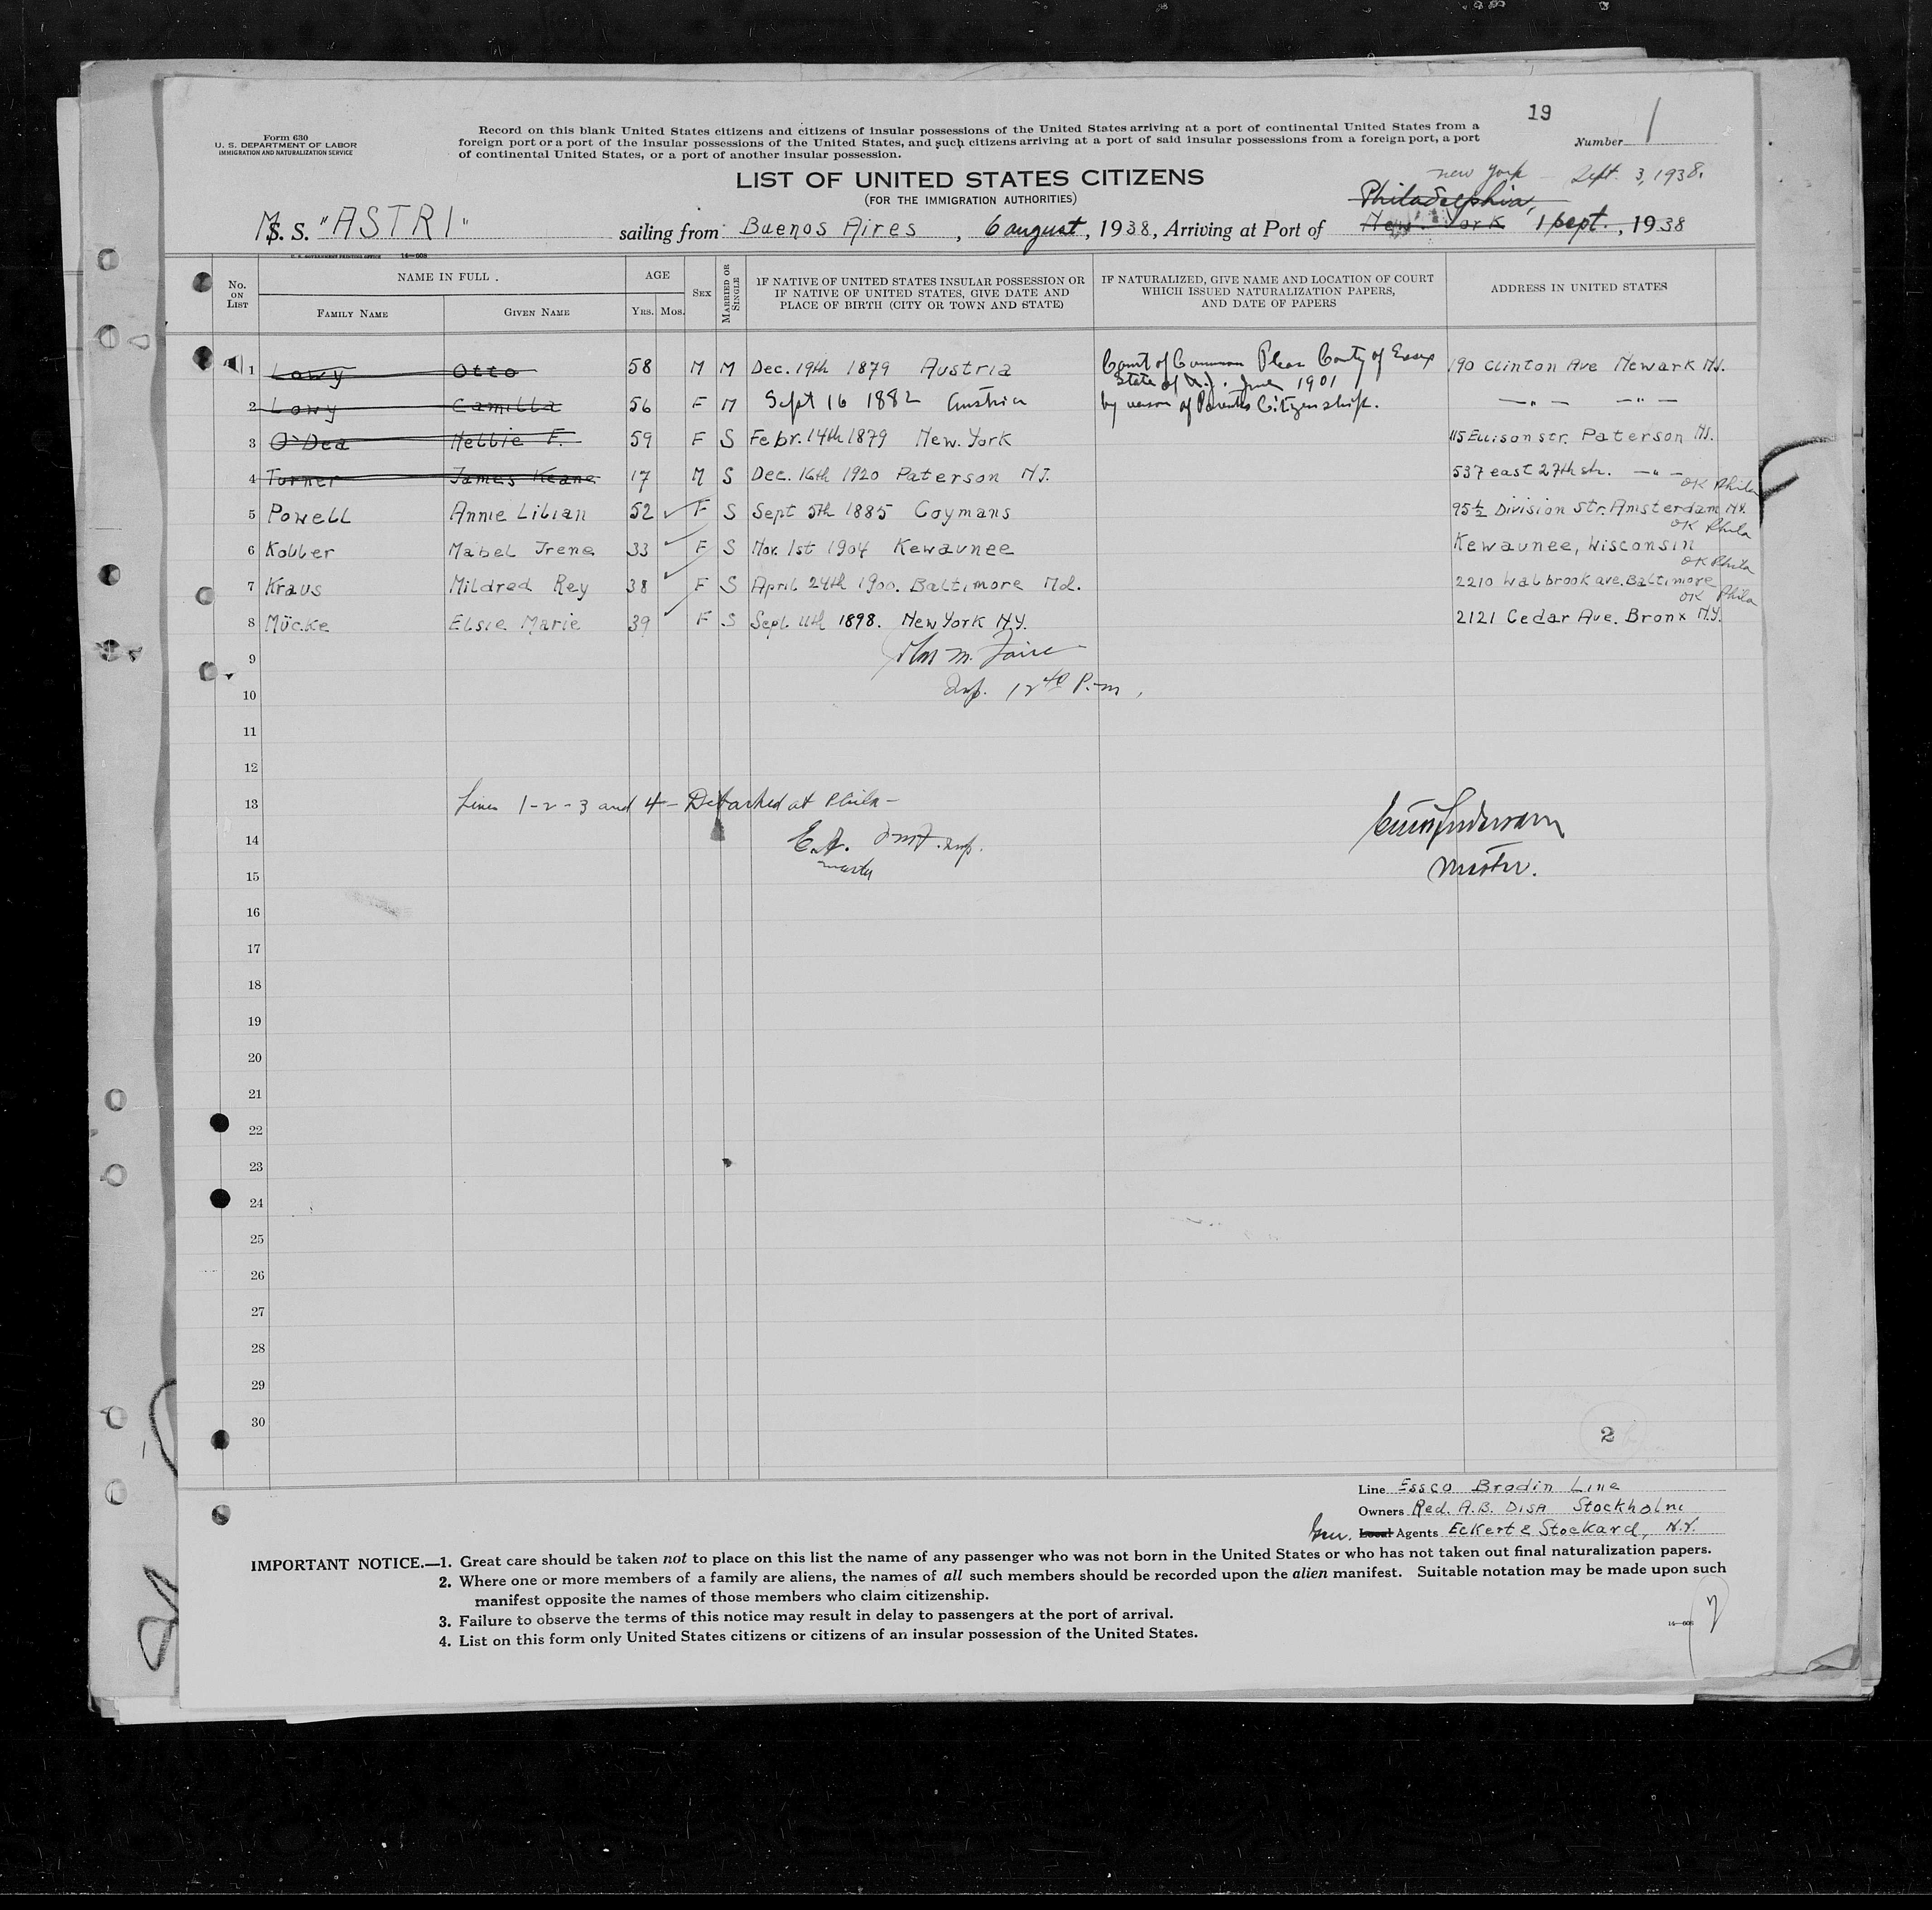 19
Form 630
U. S. DEPARTMENT OF LABOR
IMMIGRATION AND NATURALIZATION SERVICE
Record on this blank United States citizens and citizens of insular possessions of the United States arriving at a port of continental United States from a
foreign port or a port of the insular possessions of the United States, and such citizens arriving at a port of said insular possessions from a foreign port, a port
of continental United States, or a port of another insular possession.
Number 1
LIST OF UNITED STATES CITIZENS
(FOR THE IMMIGRATION AUTHORITIES)
New York Sept. 3, 1938.
Philadelphia,
M. S. "ASTRI" sailing from Buenos Aires, 6 august, 1938, Arriving at Port of New York 1 Sept., 1938
U. S. GOVERNMENT PRINTING OFFICE 14—608
No. ON LIST
NAME IN FULL
FAMILY NAME
GIVEN NAME
AGE
YRS. MOS.
SEX
MARRIED OR SINGLE
IF NATIVE OF UNITED STATES INSULAR POSSESSION OR
IF NATIVE OF UNITED STATES, GIVE DATE AND
PLACE OF BIRTH (CITY OR TOWN AND STATE)
IF NATURALIZED, GIVE NAME AND LOCATION OF COURT
WHICH ISSUED NATURALIZATION PAPERS,
AND DATE OF PAPERS
ADDRESS IN UNITED STATES
1 Lowy Otto 58 M M Dec. 19th 1879 Austria Court of Common Pleas County of Essex State of N.J. June 1901 190 Clinton Ave Newark N.J.
2 Lowy Camilla 56 F M Sept 16 1882 Austria by reason of Parents Citizenship. —"— —"—
3 O'Dea Nellie F. 59 F S Febr. 14th 1879 New. York 115 Ellison str. Paterson NJ.
4 Turner James Keane 17 M S Dec. 16th 1920 Paterson N.J. 537 east 27th str. —"—
OK Phila
5 Powell Annie Lilian 52 F S Sept 5th 1885 Coymans 95½ Division Str. Amsterdam N.Y.
OK Phila
6 Kolber Mabel Irene 33 F S Nov. 1st 1904 Kewaunee Kewaunee, Wisconsin
OK Phila
7 Kraus Mildred Rey 38 F S April 24th 1900. Baltimore Md. 2210 Walbrook ave. Baltimore
OK Phila
8 Mücke Elsie Marie 39 F S Sept. 11th 1898. New York N.Y. 2121 Cedar Ave. Bronx N.Y.
9
Insp. 12 40 P.m.
10
11
12
13 Lines 1-2-3 and 4 - Debarked at Phila -
14 E.A. Insp.
master
15 Master.
16
17
18
19
20
21
22
23
24
25
26
27
28
29
30
2
Line Essco Brodin Line
Owners Red. A.B. Disa Stockholm
Gen. Local Agents Eckert & Stockard, N.Y.
IMPORTANT NOTICE.—1. Great care should be taken not to place on this list the name of any passenger who was not born in the United States or who has not taken out final naturalization papers.
2. Where one or more members of a family are aliens, the names of all such members should be recorded upon the alien manifest. Suitable notation may be made upon such
manifest opposite the names of those members who claim citizenship.
3. Failure to observe the terms of this notice may result in delay to passengers at the port of arrival.
4. List on this form only United States citizens or citizens of an insular possession of the United States.
14—608